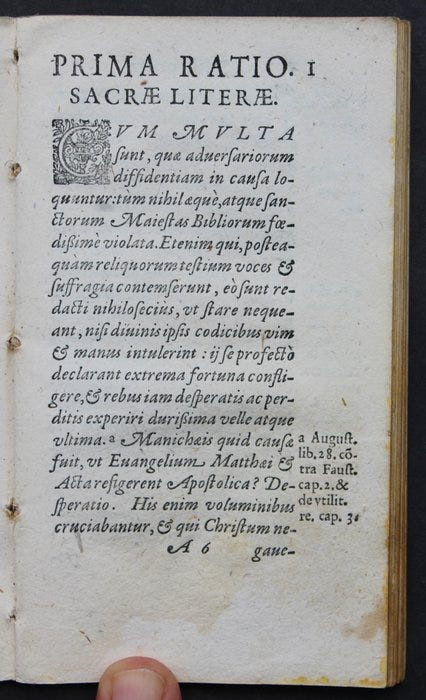 PRIMA RATIO. 1
SACRÆ LITERÆ.
CVM MVLTA
ſunt, quæ aduerſariorum
diffidentiam in cauſa lo-
quuntur: tum nihil æquè, atque ſan-
ctorum Maieſtas Bibliorum fœ-
dißimè violata. Etenim qui, poſtea-
quàm reliquorum teſtium voces &
ſuffragia contemſerunt, eò ſunt re-
dacti nihiloſeciùs, vt ſtare neque-
ant, niſi diuinis ipſis codicibus vim
& manus intulerint : ij ſe profectò
declarant extrema fortuna confli-
gere, & rebus iam deſperatis ac per-
ditis experiri durißima velle atque
vltima. a Manichæis quid cauſæ
fuit, vt Euangelium Matthæi &
Acta refigerent Apoſtolica? De-
ſperatio. His enim voluminibus
cruciabantur, & qui Chriſtum ne-
A 6 gaue-
a Auguſt.
lib. 28. cõ-
tra Fauſt.
cap. 2. &
de vtilit.
re. cap. 3.